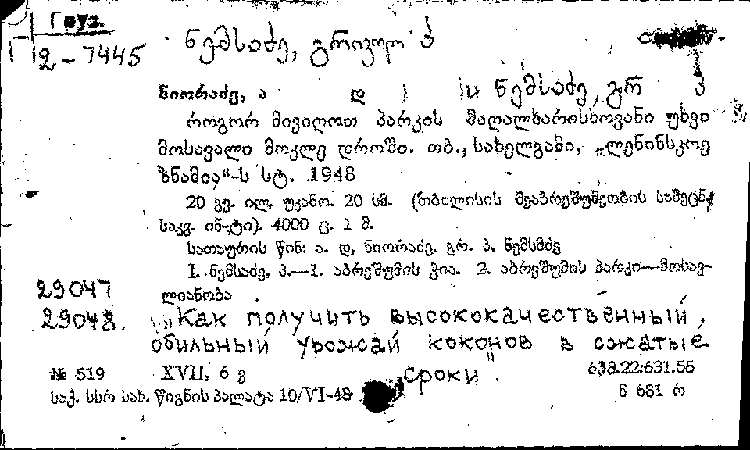 Груз.
Г2-7445
ნემსაძე, გრიგოლ პ
ნიორაძე, ა დ ) და ნემსაძე, გრ პ
როგორ მივიღოთ პარკის მაღალხარისხოვანი უხვი
მოსავალი მოკლე დროში. თბ., სახელგამი, „ლენინსკოე
ზნამია“-ს სტ. 1948
20 გვ. ილ. უკანო. 20 სმ. (თბილისის მეაბრეშუმეობის სამეცნ.
საკვ. ინ-ტი). 4000 ც. 1 მ.
სათაურის წინ: ა. დ. ნიორაძე, გრ. პ. ნემსაძე
1. ნემსაძე, პ.—1. აბრეშუმის ჭია. 2. აბრეშუმის პარკი—მოსავ-
ლიანობა
29047
29048
„Как получить высококачественный,
обильный урожай коконов в сжатые
сроки"
№ 519 XVII, 6 გ 638.22:631.55
საქ. სსრ სახ. წიგნის პალატა 10/VI-48 6 681 რ